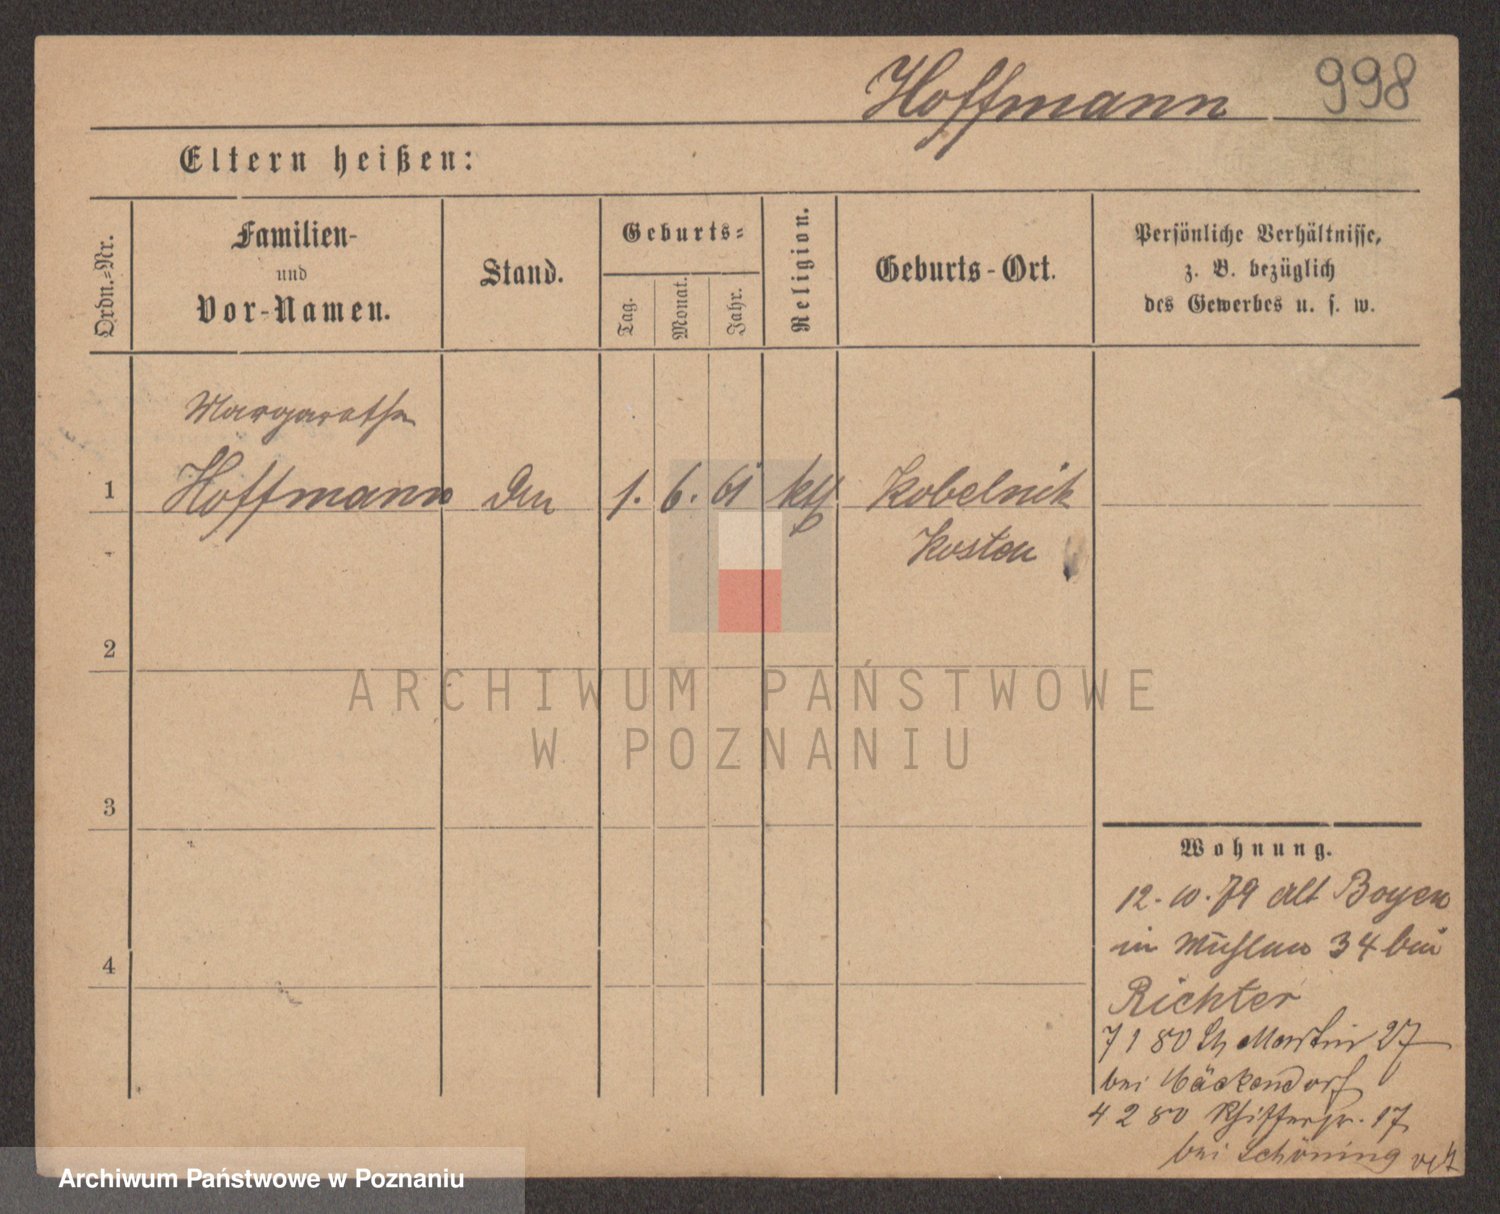 Hoffmann 998
Eltern heißen:
Ordn.-Nr.
Familien-
und
Vor-Namen.
Stand.
Geburts-
Tag.
Monat.
Jahr.
Religion.
Geburts-Ort.
Persönliche Verhältnisse,
z. B. bezüglich
des Gewerbes u. s. w.
Margarethe
1 Hoffmann 1. 6. 61 kth Kobelnik
Kosten
2
3
4
ARCHIWUM PAŃSTWOWE
W POZNANIU
Wohnung.
12. 10. 79 Alt Boyen
in 34 bei
Richter
7 1 80 St Martin 27
bei Bäckendorf
4 2 80 17
bei Schöning
Archiwum Państwowe w Poznaniu